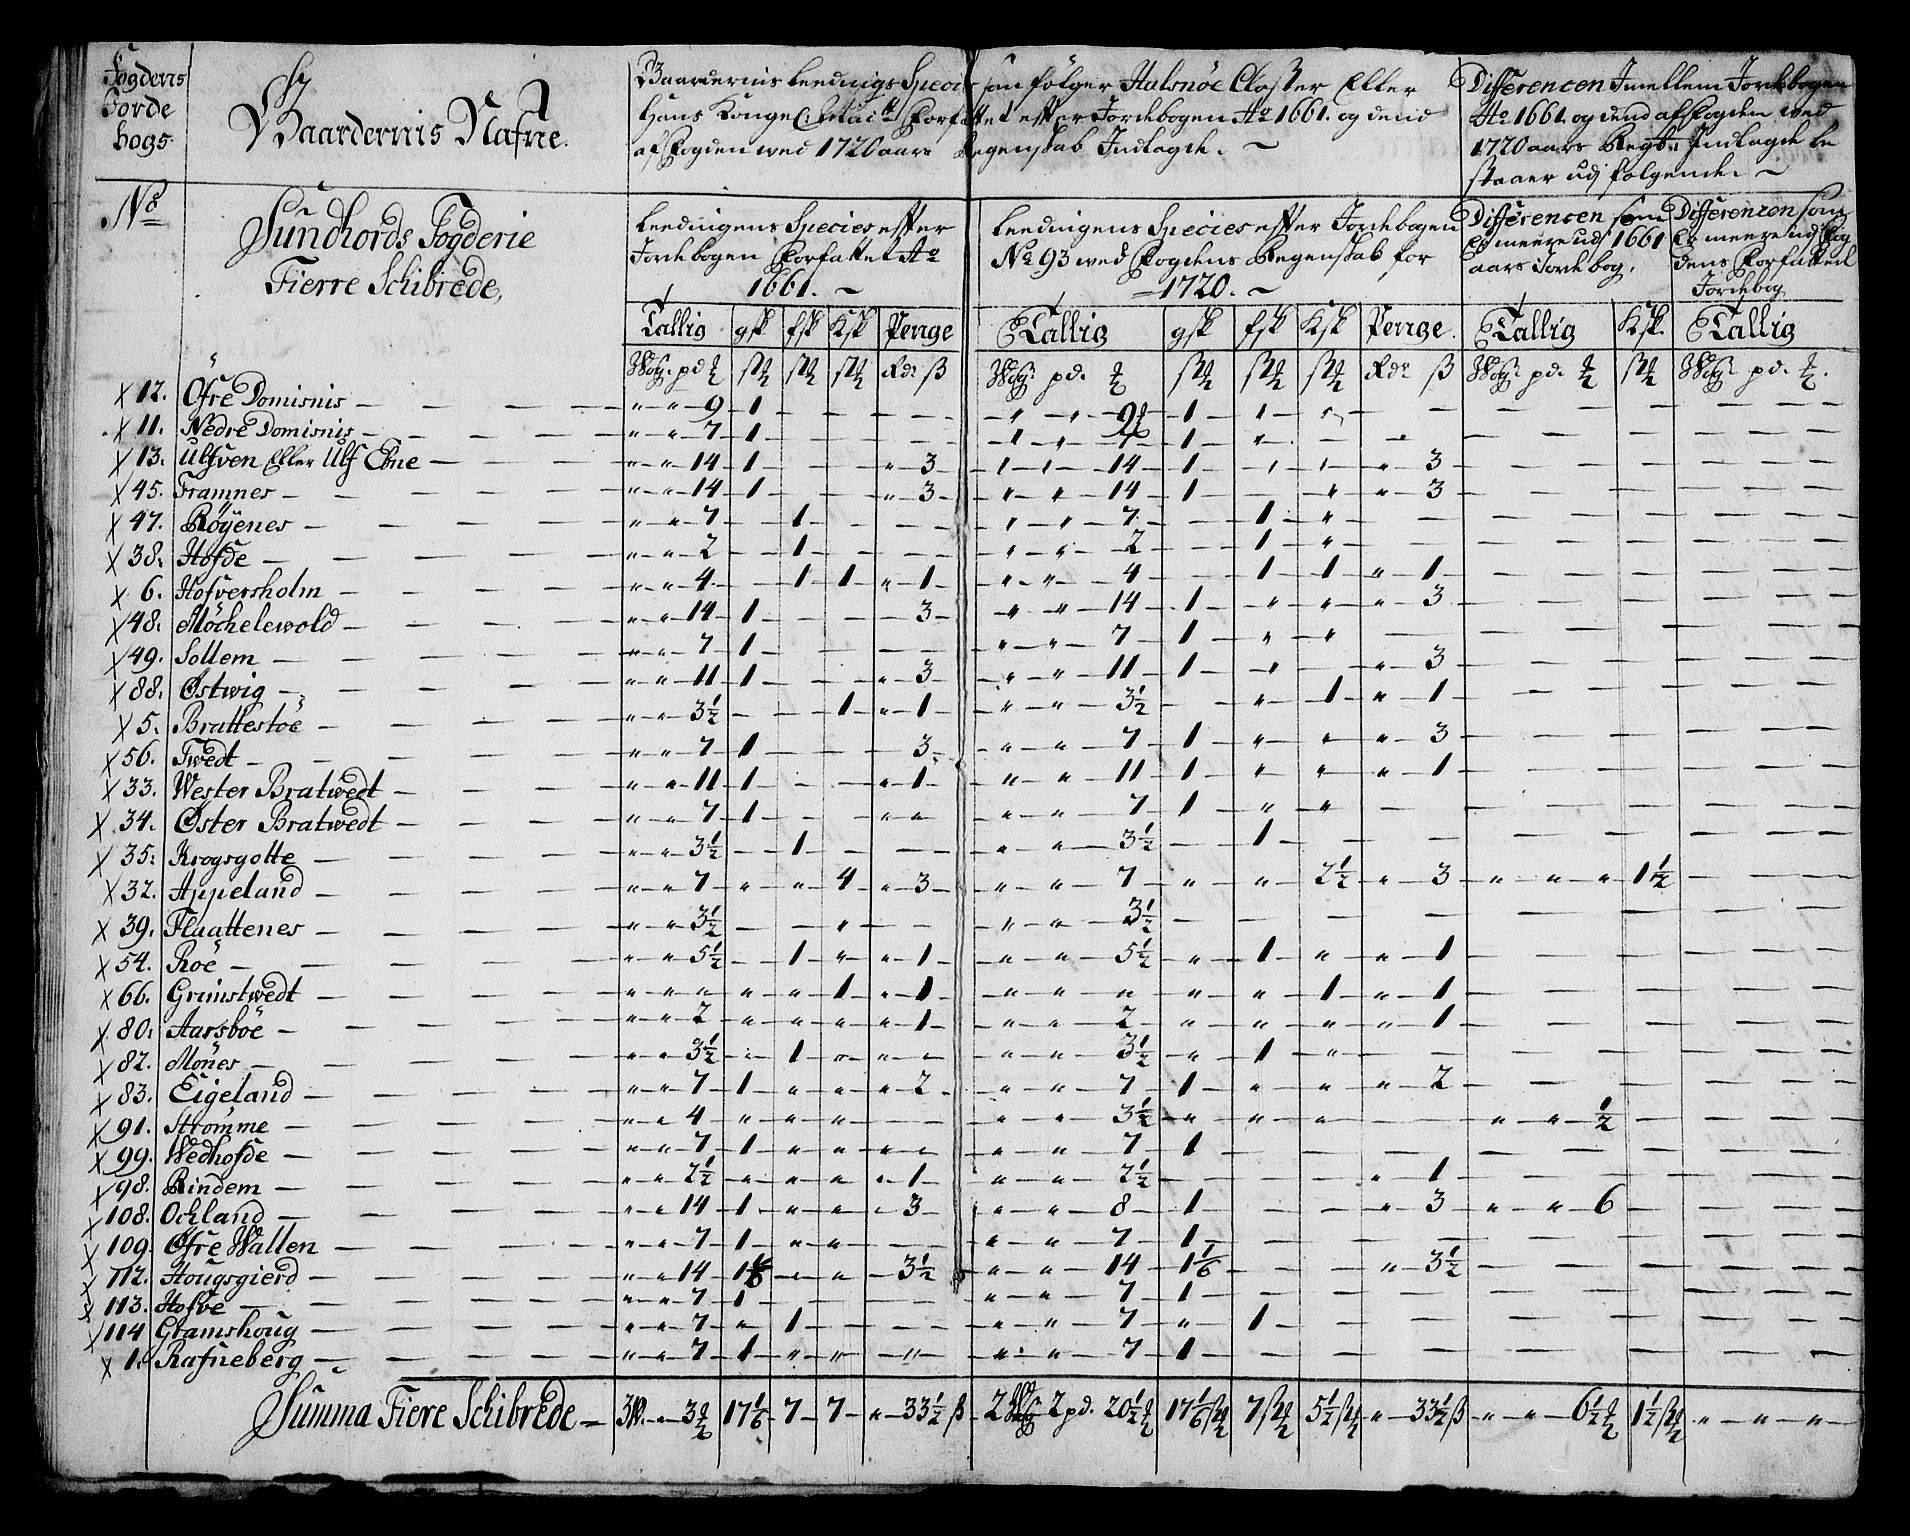 Fogdens Jorde bogs.
Gaardernis Nafne.
Gaardernis Leedings Speci som følger Halsnöe Closter Eller
Hans Konge: Forfattet efter Jordebogen Ao 1661. og dend
af Fogden wed 1720 aars Regenskab Indlagde.
Differencen Imellem Jordebogen
Ao 1661. og dend af Fogden wed
1720 aars Regsk: Indlagde be
staaer udj følgende.
No
Sundhords Fogderie
Fierre Schibrede,
Leedingens Species efter
Jordebogen Forfattet Ao
1661.
Leedingens Species efter Jordebogen
No 93 wed Fogdens Regenskab for
1720.
Differencen som
Er meere udj 1661
aars Jordebog.
Differencen som
Er meere udj Fog
dens Forfattede
Jordebog
Tallig gsk fsk Ksk Penge Tallig gsk fsk Ksk Penge. Tallig Ksk. Tallig
Wog. pd. Rdr ß Wog: pd. Rdr ß Wog: pd. Wog: pd.
12. Ofre Domisnis — " " 9 1 — " " 9 1
11. Nedre Domisnis — " " 7 1 — " " 7 1
13. Ulfven Eller Ulf Ebne — " " 14 1 " 3 — " " 14 1 " 3
45. Framnes — " " 14 1 " 3 — " " 14 1 " 3
47. Röyenes — " " 7 1 — " " 7 1
38. Hofde — " " 2 1 — " " 2 1
6. Hofversholm — " " 4 1 1 " 1 — " " 4 1 1 " 1
48. Möchelewold — " " 14 1 3 — " " 14 1 " " " 3
49. Sollem — " " 7 1 — " " 7 1 " "
88. Østwig — " " 11 1 " 3 — " " 11 1 " " 3
5. Brattestöe — " " 3½ 1 " 1 — " " 3½ " 1 " 1
56. Twedt — " " 7 1 3 — " " 7 1 " " " 3
33. Wester Bratwedt — " " 11 1 " 1 — " " 11 1 " " " 1
34. Øster Bratwedt — " " 7 1 " " — " " 7 1 " "
35. Krogsgotte — " " 3½ 1 — " " 3½ 1
32. Appeland — " " 7 " " 4 " 3 — " " 7 " " 2½ " 3 " " " 1½
39. Flaattenes — " " 3½ " — " " 3½
54. Roe — " " 5½ 1 " " 1 — " " 5½ " 1 " " 1
66. Grimstwedt — " " " " " 1 " 1 — " " " " " 1 " 1
80. Aarsböe — " " 2 " " " " 1 — " " 2 " " " " 1
82. Mönes — " " 3½ " 1 " " " — " " 3½ " 1 "
83. Eigeland — " " 7 1 " " " 2 — " " 7 1 " " " 2
91. Strömme — " " 4 " " " — " " 3½ " " " " " ½
99. Wedhofde — " " 7 1 " " " " — " " 7 1
98. Rindem — " " 2½ " " " " 1 — " " 2½ " 1
108. Ochland — " " 14 1 " " " 3 — " " 8 1 " 3 " " 6
109. Øfre Wallen — " " 7 1 " " — " " 7 1
112. Hougsgierd — " " 14 1⅙ " " 3½ — " " 14 1⅙ " 3½
113. Hofve — " " 7 1 — " " 7 1
114 Gramshoug — " " 7 " 1 — " " 7 " 1
1. Rafneberg — " " 7 1 " " " — " " 7 1
Summa Fiere Schibrede — 3W. " 3 17⅙ 7 7 " 33½ ß 2 Wog 2 pd. 20½ 17⅙ 7 5½ " 33½ ß " " 6½ 1½ " " "